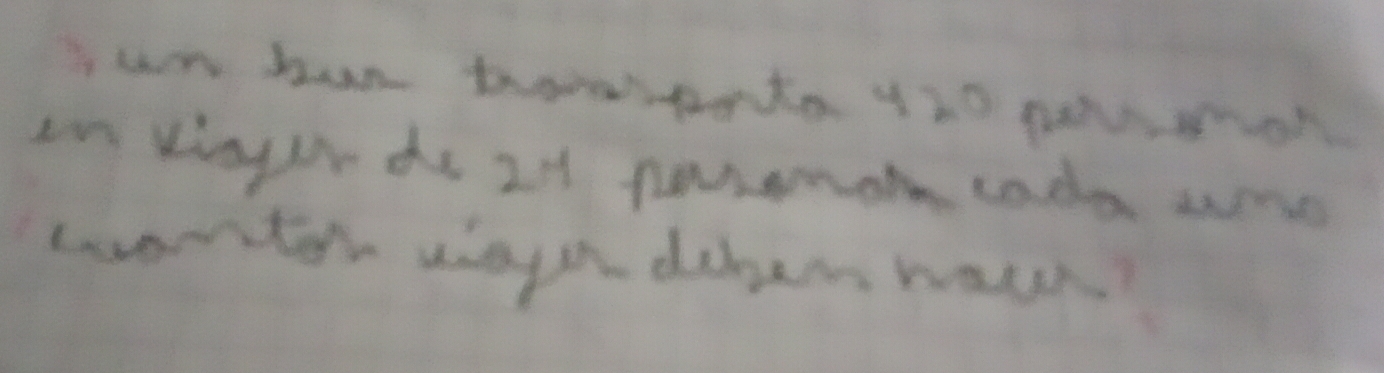 3, un bus transporta 420 personas
en viajes de 24 personas cada uno
cuantos viajes deben hacer?